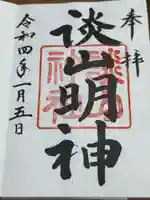 奉拝
談山明神
談山
神社
令和四年一月五日